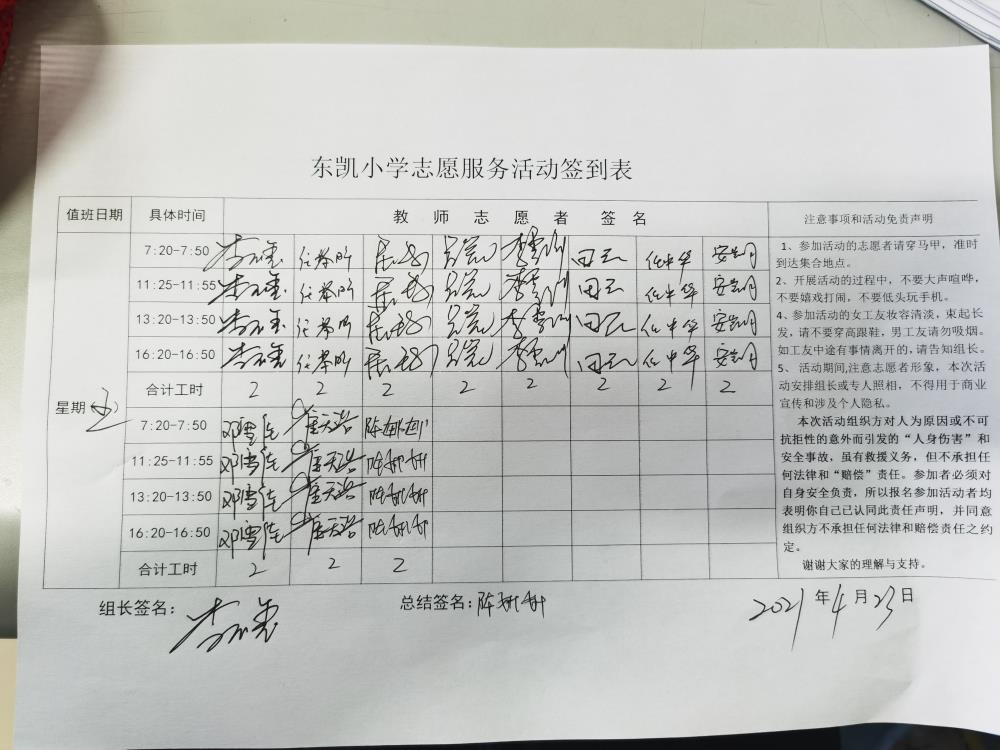 东凯小学志愿服务活动签到表
值班日期 具体时间 教师志愿者签名 注意事项和活动免责声明
星期(五)
7:20-7:50 任翠 田 任中华 安
11:25-11:55 任 田 任中华 安
13:20-13:50 任 田 任中华 安
16:20-16:50 任 田 任中华 安
合计工时 2 2 2 2 2 2 2 2
7:20-7:50 邓雪佳 天浩 陈
11:25-11:55 邓雪佳 天浩 陈
13:20-13:50 邓雪佳 天浩 陈
16:20-16:50 邓雪佳 天浩 陈
合计工时 2 2 2
1、参加活动的志愿者请穿马甲，准时
到达集合地点。
2、开展活动的过程中，不要大声喧哗，
不要嬉戏打闹，不要低头玩手机。
4、参加活动的女工友妆容清淡，束起长
发，请不要穿高跟鞋，男工友请勿吸烟。
如工友中途有事情离开的，请告知组长。
5、活动期间,注意志愿者形象，本次活
动安排组长或专人照相，不得用于商业
宣传和涉及个人隐私。
本次活动组织方对人为原因或不可
抗拒性的意外而引发的“人身伤害”和
安全事故，虽有救援义务，但不承担任
何法律和“赔偿”责任。参加者必须对
自身安全负责，所以报名参加活动者均
表明你自己已认同此责任声明，并同意
组织方不承担任何法律和赔偿责任之约
定。
谢谢大家的理解与支持。
组长签名： 李 总结签名：陈 2021年4月23日